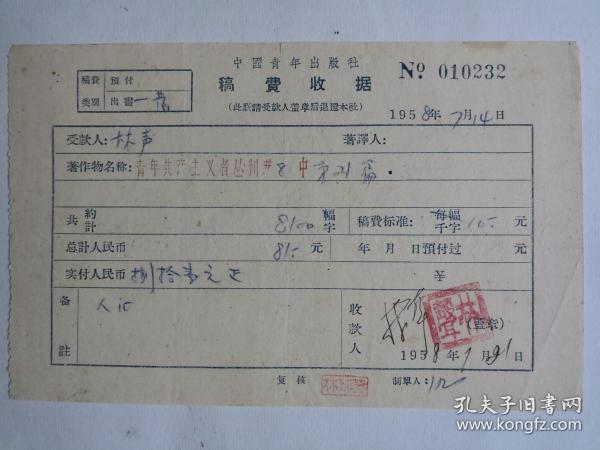 中國青年出版社
稿費收据
№ 010232
(此联請受款人蓋章后退还本社)
稿費类别 預付
出書 一营
1958年7月14日
受款人: 林声 著譯人:
著作物名称: 青年共产主义者丛刊#8中第21篇
共約計 8100 幅字 稿費标准: 每幅千字 10- 元
总計人民币 81- 元 年 月 日預付过 元
实付人民币 捌拾壹元正 ¥
备註 收款人 (蓋章)
1958年7月21日
复核 制單人:
孔夫子旧書网
www.kongfz.com